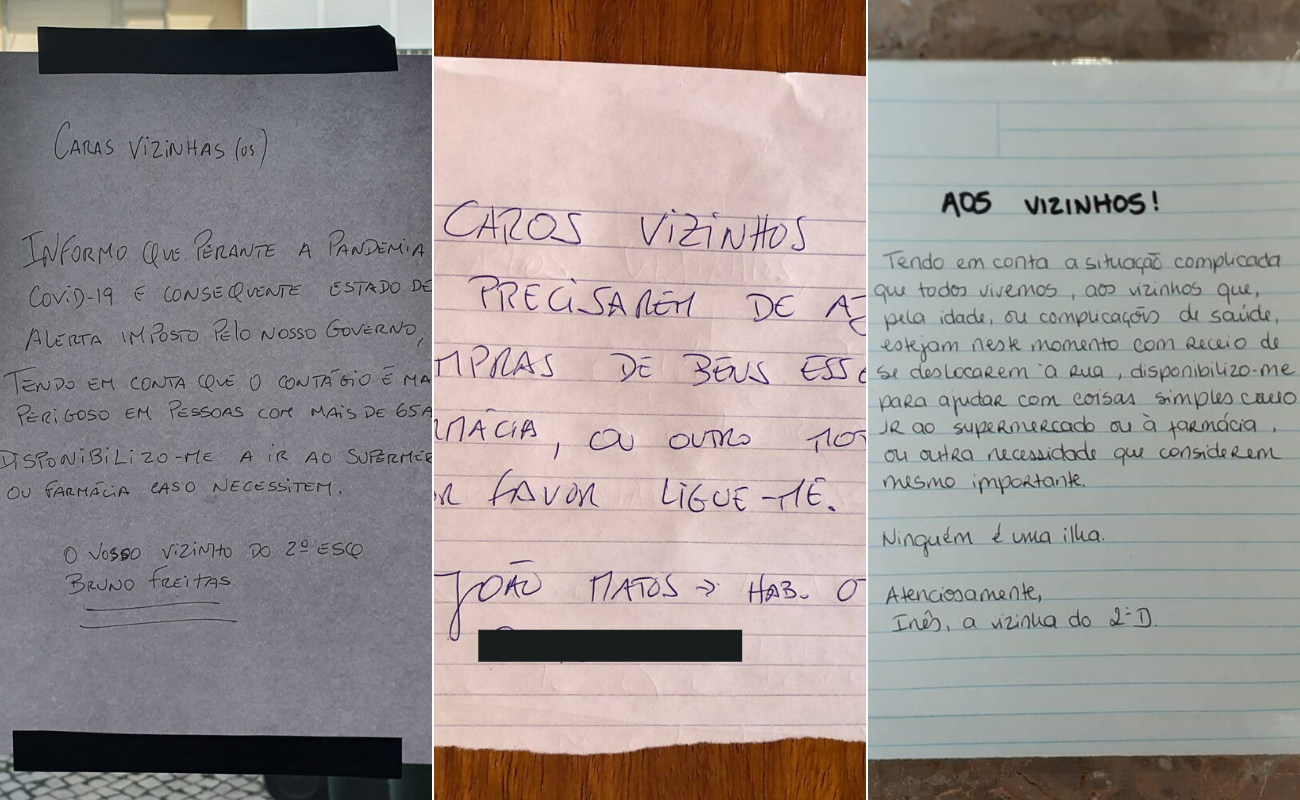 CARAS VIZINHAS (OS)
INFORMO QUE PERANTE A PANDEMIA
COVID-19 E CONSEQUENTE ESTADO DE
ALERTA IMPOSTO PELO NOSSO GOVERNO,
TENDO EM CONTA QUE O CONTÁGIO É MA
PERIGOSO EM PESSOAS COM MAIS DE 65A
DISPONIBILIZO-ME A IR AO SUPERMER
OU FARMÁCIA CASO NECESSITEM.
O VOSSO VIZINHO DO 2º ESQ
BRUNO FREITAS
CAROS VIZINHOS
PRECISAREM DE A
MPRAS DE BENS ESSE
RMÁCIA, OU OUTRO MOT
OR FAVOR LIGUE-ME.
JOÃO MATOS → HAB. O
AOS VIZINHOS!
Tendo em conta a situação complicada
que todos vivemos, aos vizinhos que,
pela idade, ou complicações de saúde,
estejam neste momento com receio de
se deslocarem à rua, disponibilizo-me
para ajudar com coisas simples como
ir ao supermercado ou à farmácia,
ou outra necessidade que considerem
mesmo importante.
Ninguém é uma ilha.
Atenciosamente,
Inês, a vizinha do 2º D.